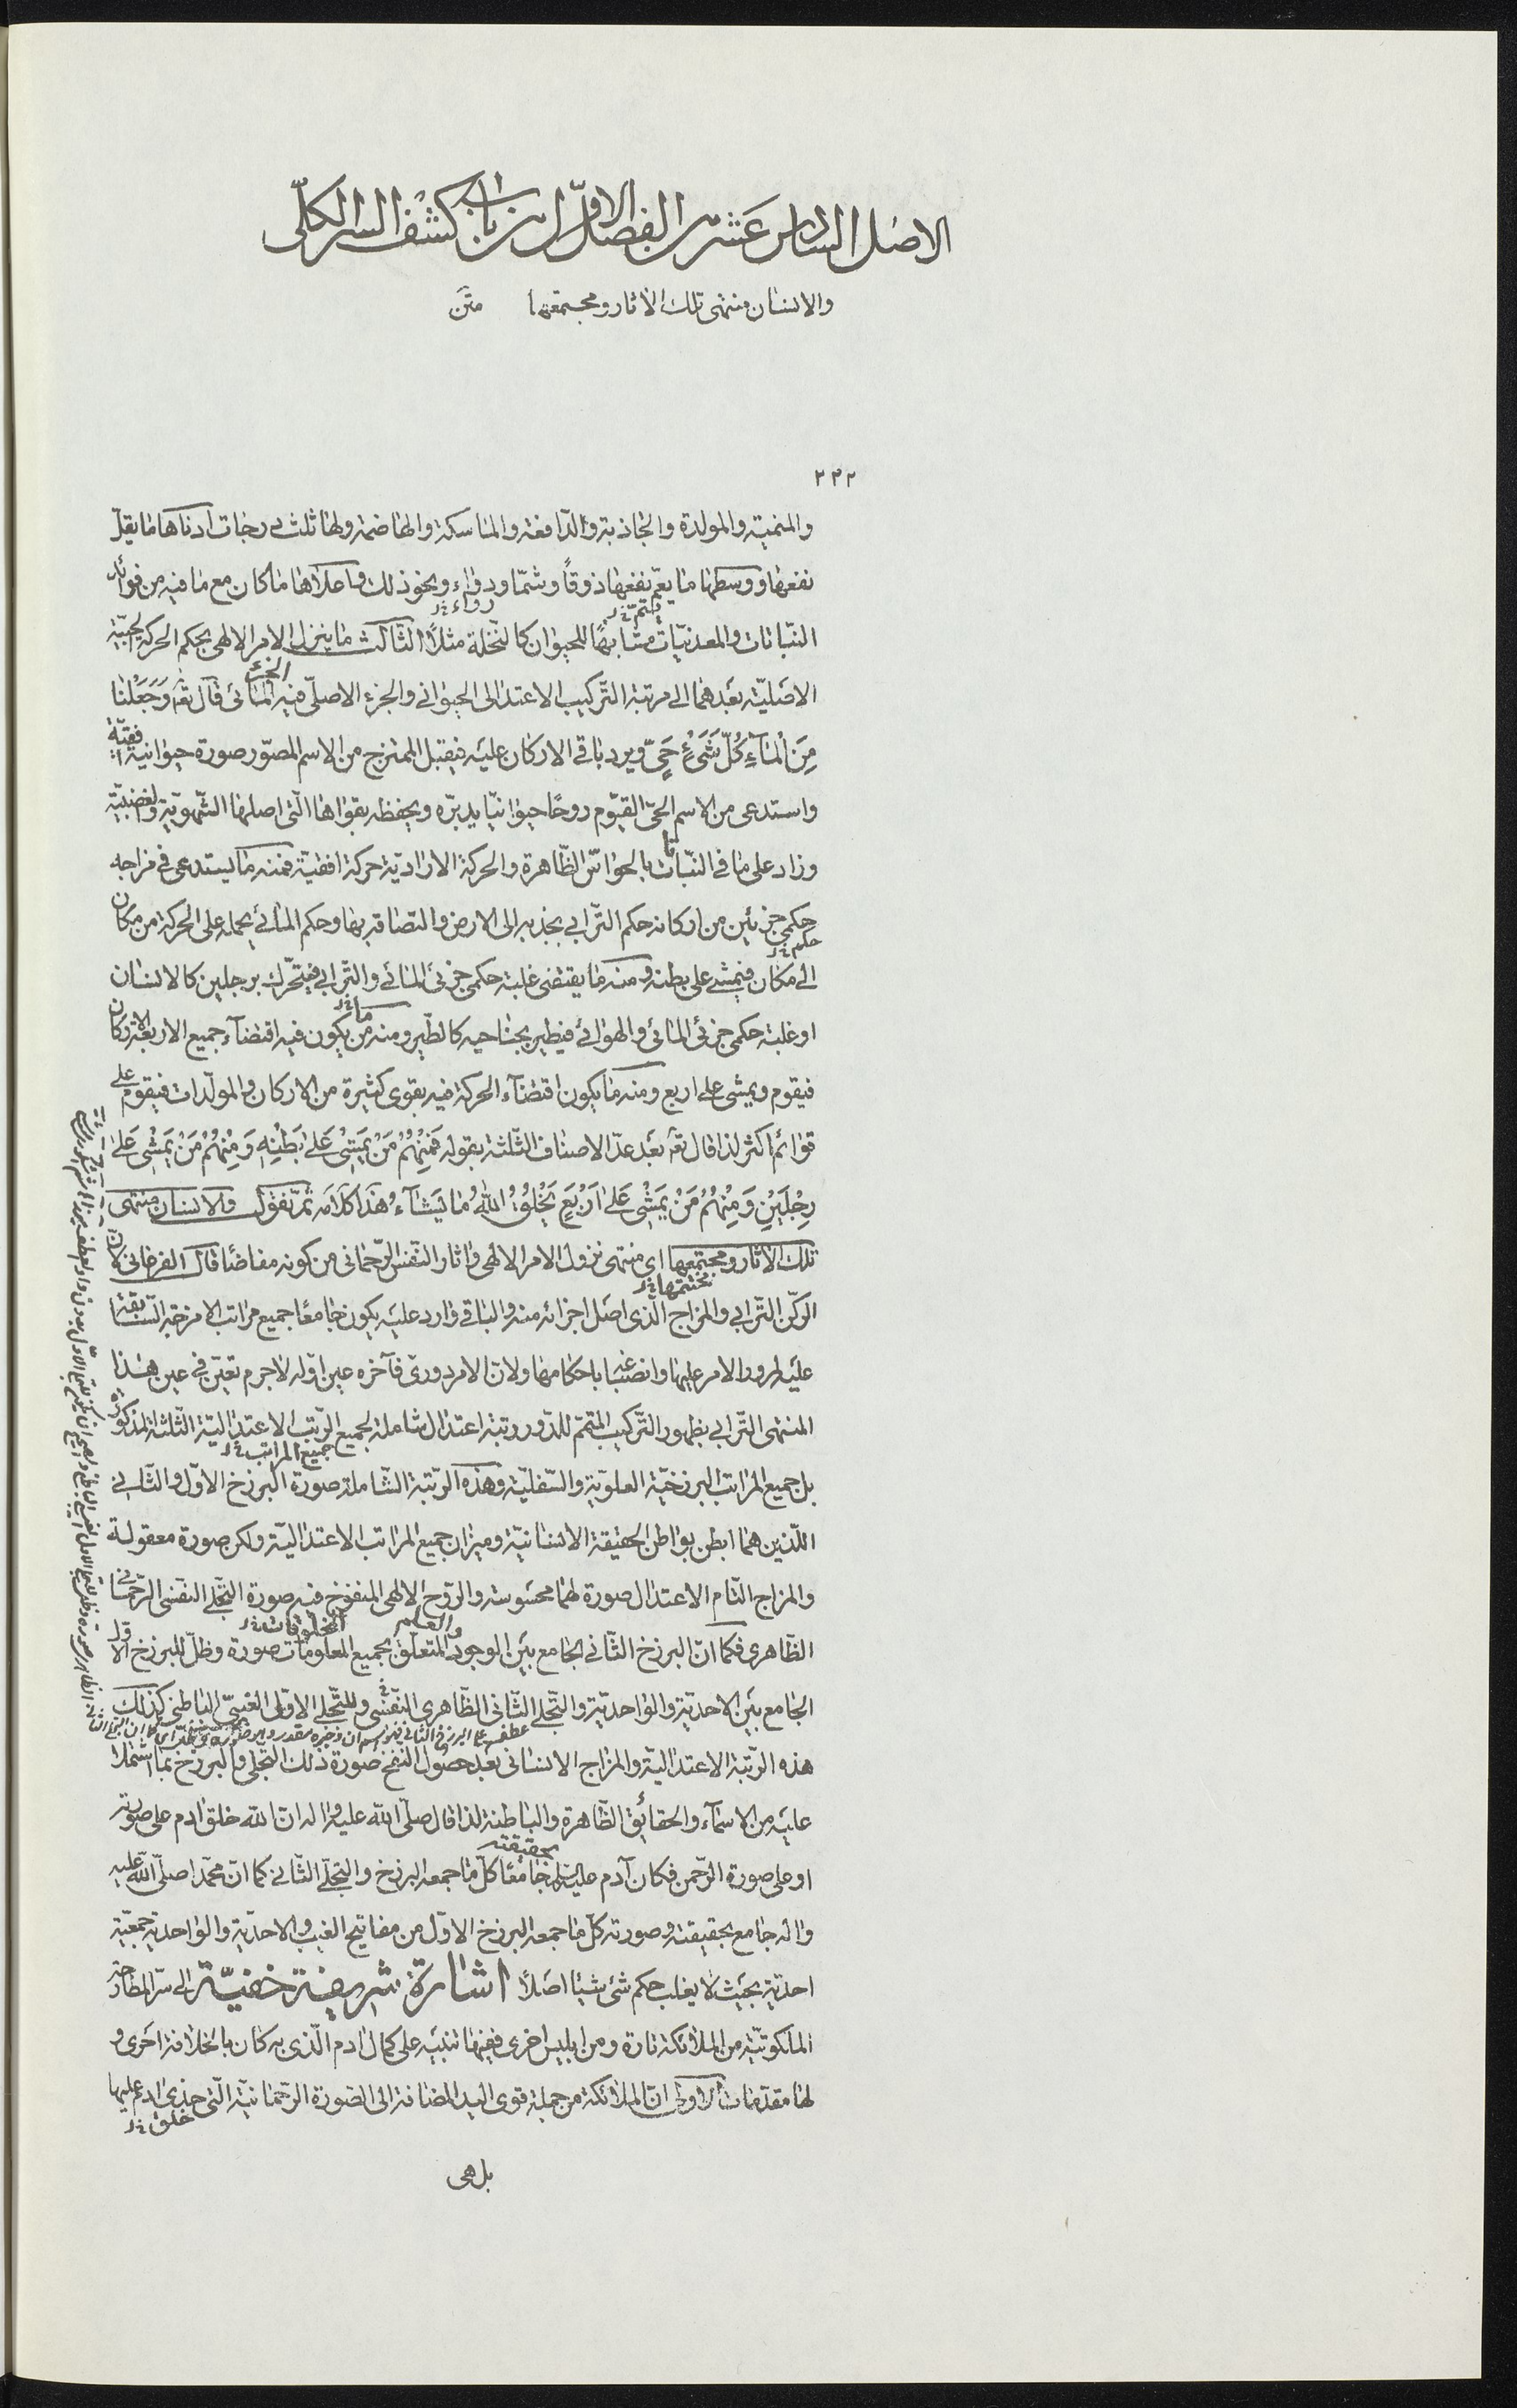 الاصل السادس عشر من الفصل الاول من باب كشف السر الكلّى
والانسان منتهى تلك الاثار ومجتمعها متن
٢٣٢
والمنمية والمولدة والجاذبة والدّافعة والماسكة والهاضمة ولها ثلث درجات ادناها ما يقلّ
نفعها ووسطها ما يعمّ نفعها ذوقًا وشمّا ودواء ونحو ذلك واعلاها ما كان مع ما فيه من فوائد
يتمّ خ‍ ل رواء خ‍ ل
النّباتات والمعدنيّات متشابهًا للحيوان كالنّخلة مثلًا الثّالث ما ينزل الامر الالهى بحكم الحركة الحبيّة
الجزء
الاصليّة بعدهما الى مرتبة التّركيب الاعتدالى الحيوانى والجزء الاصلىّ فيه المائى قال تع‍ وَجَعَلْنَا
مِنَ الْمَاءِ كُلَّ شَىْءٍ حَىٍّ ويرد باقى الاركان عليه فيقبل الممتزج من الاسم المصوّر صورة حيوانية افقيّة
واستدعى من الاسم الحىّ القيّوم روحًا حيوانيّا يدبّره ويحفظه بقواها الّتى اصلها الشّهويّة والغضبيّة
وزاد على ما فى النّباتات بالحواسّ الظّاهرة والحركة الاراديّة حركة افقيّة فمنه ما يستدعى فى مزاجه
حكمى جزئين من اركانه حكم التّرابى يجذبه الى الارض والتصاقه بها وحكم المائى يحمله على الحركة من مكان
حكم خ‍ ل
الى مكان فيمشى على بطنه ومنه ما يقتضى غلبة حكمى جزئى المائى والتّرابى فيتحّرك برجلين كالانسان
ما خ‍ ل
او غلبة حكمى جزئى المائى والهوائى فيطير بجناحيه كالطّير ومنه من يكون فيه اقتضاء جميع الاربعة الاركان
فيقوم ويمشى على اربع ومنه ما يكون اقتضاء الحركة فيه بقوى كثيرة من الاركان والمولّدات فيقوم على
قوائم اكثر لذا قال تع‍ بعد عدّ الاصناف الثّلثة بقوله فَمِنْهُمْ مَنْ يَمْشِى عَلىٰ بَطْنِهِ وَمِنْهُمْ مَنْ يَمْشِى عَلىٰ
رِجْلَيْنِ وَمِنْهُمْ مَنْ يَمْشِى عَلىٰ اَرْبَعٍ يَخْلُقُ اللهُ مَا يَشَاءُ هذا كلامه ثمّ نقول والانسان منتهى
تلك الاثار ومجتمعها اى منتهى نزول الامر الالهى واثار النّفس الرّحمانى من كونه مفاضًا قال الفرغانى كان
مختتمها خ‍ ل
الركن التّرابى والمزاج الّذى اصل اجزائه منه والباقى وارد عليه يكون جامعًا جميع مراتب الامزجة السّابقة
عليه لمرور الامر عليها وانصباغه باحكامها ولانّ الامر دورىّ فآخره عين اوّله لاجرم تعيّن فى عين هذا
المنتهى التّرابى بظهور التّركيب المتمّم للدّور رتبة اعتدال شاملة لجميع الرّتب الاعتداليّة الثّلثة المذكورة
جميع المراتب خ‍ ل
بل جميع المراتب البرزخيّة العلويّة والسّفليّة وهذه الرّتبة الشّاملة صورة البرزخ الاوّل والثّانى
اللّذين هما ابطن بواطن الحقيقة الانسانيّة وميزان جميع المراتب الاعتداليّة ولكن صورة معقولة
والمزاج التّام الاعتدال صورة لهما محسوسة والرّوح الالهى المنفوخ فيه صورة التّجلى النفسى الرّحمانى
والعلم المخلوقات خ‍ ل
الظّاهرى فكما انّ البرزخ الثّانى الجامع بين الوجود المتعلّق بجميع المعلومات صورة وظلّ للبرزخ الاوّل
الجامع بين الاحديّة والواحديّة والتّجلى الثّانى الظّاهرى النّفسى وللتّجلى الاوّلى الغيبىّ الباطنى كذلك
هذه الرّتبة الاعتداليّة والمزاج الانسانى بعد حصول النّفخ صورة ذلك التّجلى والبرزخ بما اشتملا
عليه من الاسماء والحقائق الظّاهرة والباطنة لذا قال صلّى الله عليه واله انّ الله خلق ادم على صورته
بحقيقته
او على صورة الرّحمن فكان آدم عليه السّلم جامعًا كلّ ما جمعه البرزخ والتّجلّى الثّانى كما انّ محمّدا صلّى الله عليه
واله جامع بحقيقته وصورته كلّ ما جمعه البرزخ الاوّل من مفاتيح الغيب والاحديّة والواحدية جمعيّة
احديّة بحيث لا يغلب حكم شئ شيئا اصلًا اشارة شريفة خفيّة الى سرّ المطارحة
الملكوتيّة من الملائكة تارة ومن ابليس اخرى ففيها تنبيه على كمال ادم الّذى به كان بالخلافة احرى و
لها مقدّمات الاولى انّ الملائكة من جملة قوى اليد المضافة الى الصّورة الرّحمانيّة الّتى حذى ادم ع‍ عليها
خلق خ‍ ل
بل هى